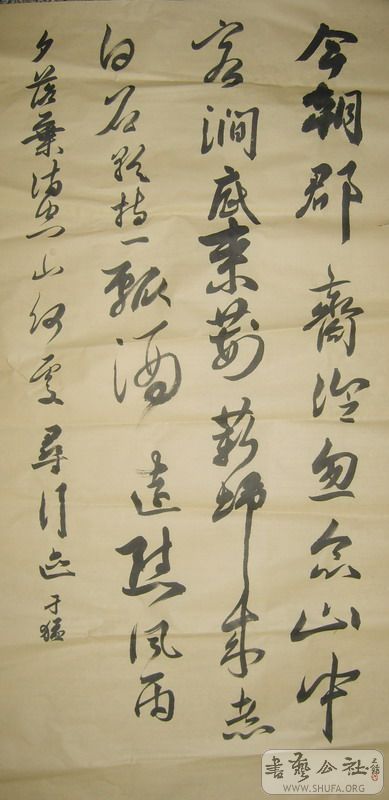 今朝郡齋冷忽念山中
客澗底束荊薪歸來煮
白石欲持一瓢酒遠慰風雨
夕落葉滿空山何處尋行迹 于猛
書藝公社
WWW.SHUFA.ORG